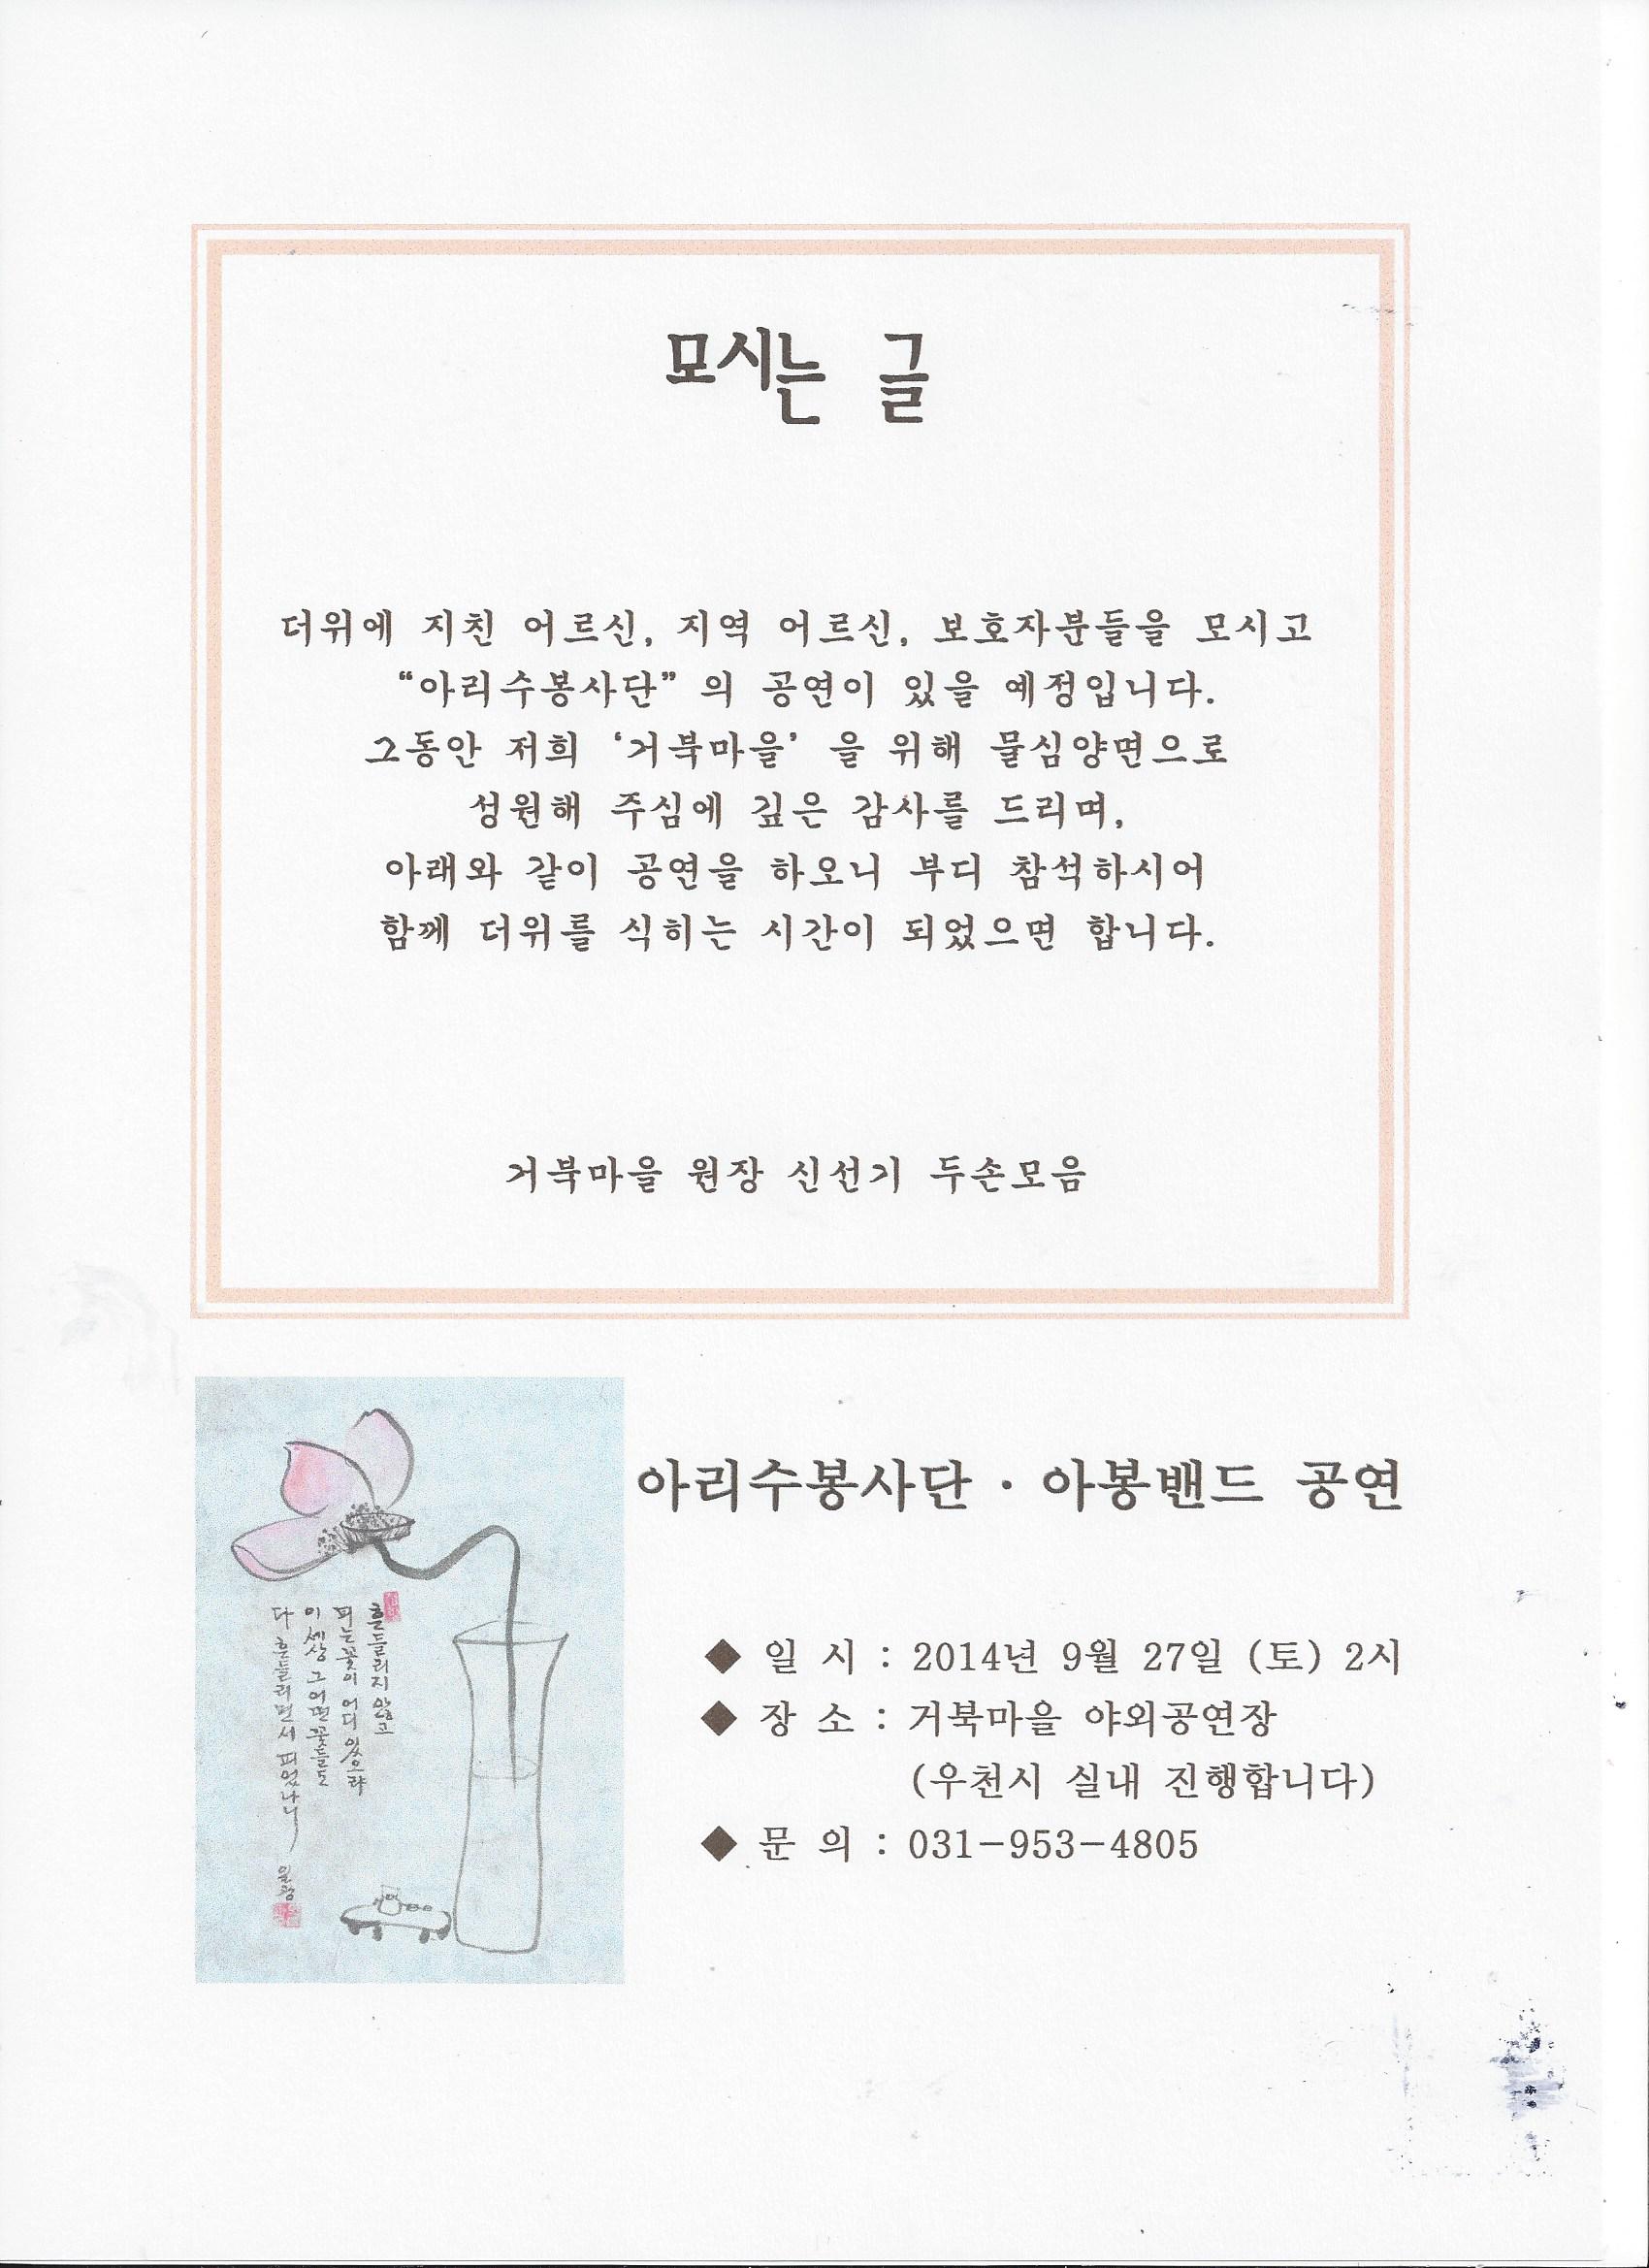 모시는 글
더위에 지친 어르신, 지역 어르신, 보호자분들을 모시고
“아리수봉사단” 의 공연이 있을 예정입니다.
그동안 저희 ‘거북마을’ 을 위해 물심양면으로
성원해 주심에 깊은 감사를 드리며,
아래와 같이 공연을 하오니 부디 참석하시어
함께 더위를 식히는 시간이 되었으면 합니다.
거북마을 원장 신선기 두손모음
아리수봉사단 · 아봉밴드 공연
◆ 일 시 : 2014년 9월 27일 (토) 2시
◆ 장 소 : 거북마을 야외공연장
(우천시 실내 진행합니다)
◆ 문 의 : 031-953-4805
흔들리지 않고
피는 꽃이 어디 있으랴
이 세상 그 어떤 꽃들도
다 흔들리면서 피었나니